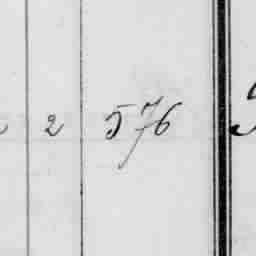 2 576